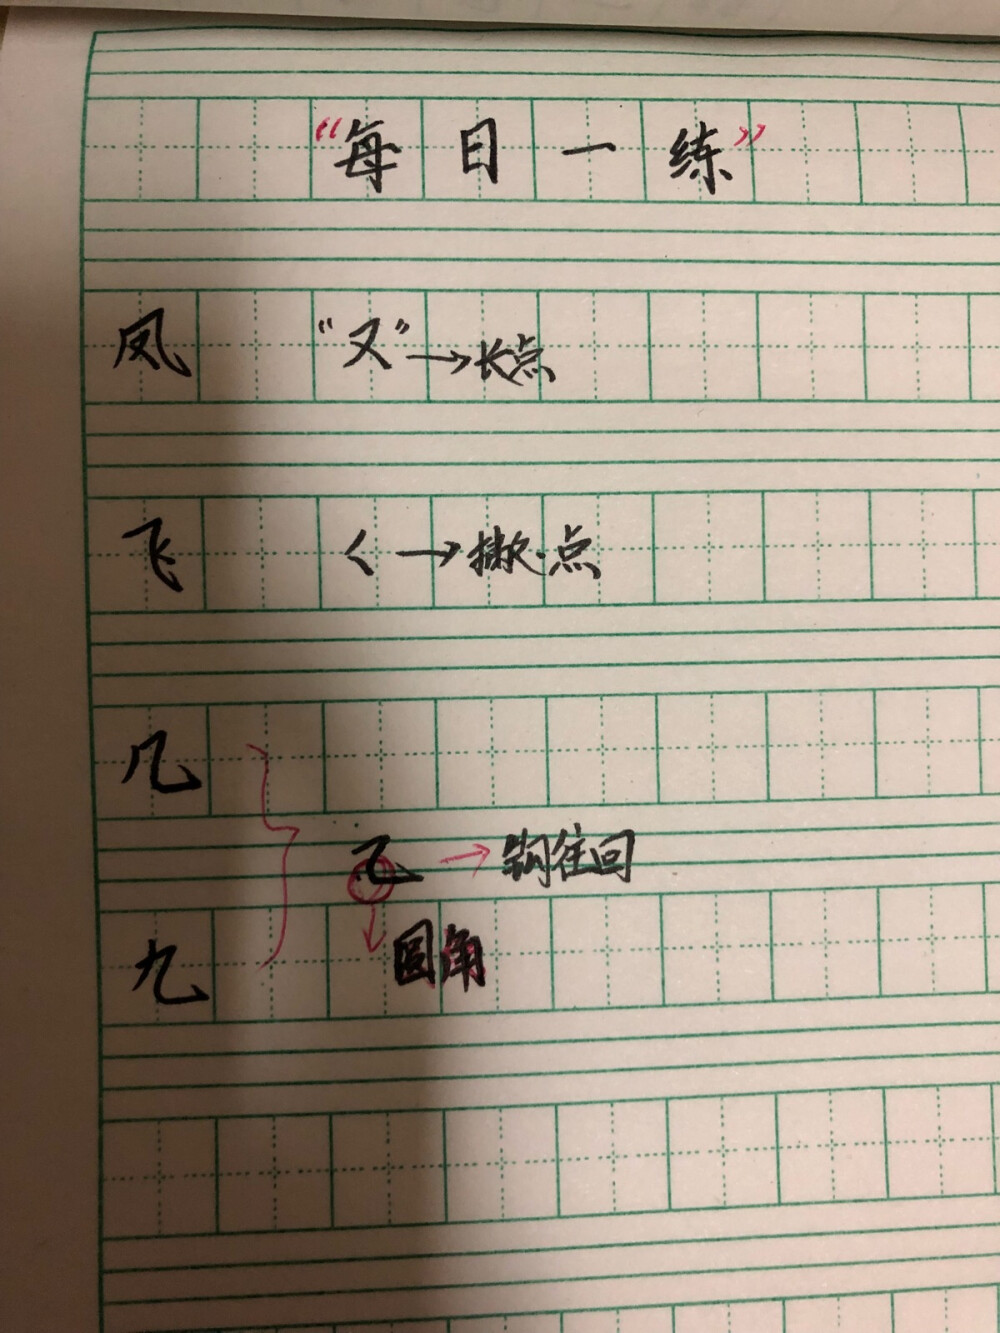 “每日一练”
凤 “又”→长点
飞 ㄑ→撇、点
几
乙→钩往回
九 圆角